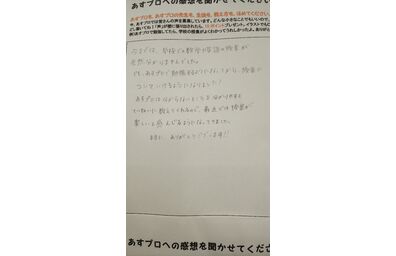 あすプロへの感想を聞かせてください
あすプロを、あすプロの先生を、生徒を、教え方を、ほめてください。
今までは、学校での数学や英語の授業が
全然分かりませんでした。
でも、あすプロで勉強するようになってから、授業に
ついていけるようになりました!
あすプロは分からないところを分かりやすく
ていねいに教えてくれるので、最近では授業が
楽しいと感じるようになってきました。
本当に、ありがとうございます!!
あすプロへの感想を聞かせてくださ